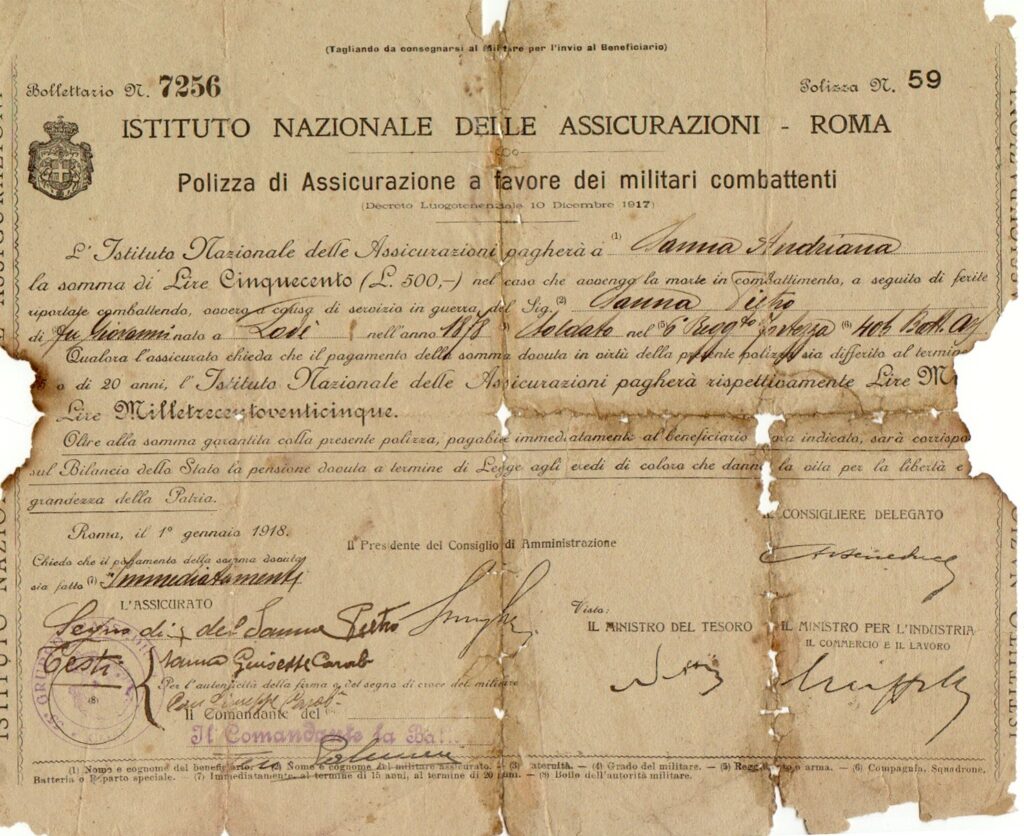 (Tagliando da consegnarsi al Militare per l'invio al Beneficiario)
Bollettario N. 7256 Polizza N. 59
ISTITUTO NAZIONALE DELLE ASSICURAZIONI - ROMA
Polizza di Assicurazione a favore dei militari combattenti
(Decreto Luogotenenziale 10 Dicembre 1917)
L'Istituto Nazionale delle Assicurazioni pagherà a (1) Sanna Andriana
la somma di Lire Cinquecento (L. 500,-) nel caso che avvenga la morte in combattimento, a seguito di ferite
riportate combattendo, ovvero a causa di servizio in guerra, del Sig. (2) Sanna Pietro
di fu Giovanni nato a Lodè nell'anno 1878 Soldato nel 6 Regg.to Fortezza (6) 405 Batt.
Qualora l'assicurato chieda che il pagamento della somma dovuta in virtù della presente polizza sia differito al termine
o di 20 anni, l'Istituto Nazionale delle Assicurazioni pagherà rispettivamente Lire
Lire Milletrecentoventicinque.
Oltre alla somma garantita colla presente polizza, pagabile immediatamente al beneficiario indicato, sarà corrispo
sul Bilancio dello Stato la pensione dovuta a termine di Legge agli eredi di coloro che danno la vita per la libertà e
grandezza della Patria.
Roma, il 1° gennaio 1918.
Chiedo che il pagamento della somma dovuta
sia fatto (7) Immediatamenti
L'ASSICURATO
Segno di + del Sanna Pietro
Testi
Sanna Guiseppe Carab
Per l'autenticità della firma o del segno di croce del militare
(8)
Il Comandante del
Il Comandante la Batt.
Il Presidente del Consiglio di Amministrazione
IL CONSIGLIERE DELEGATO
Visto:
IL MINISTRO DEL TESORO
Nitti
IL MINISTRO PER L'INDUSTRIA
IL COMMERCIO E IL LAVORO
(1) Nome e cognome del beneficiario. (2) Nome e cognome del militare assicurato. - (3) Paternità. - (4) Grado del militare. - (5) Reggimento o arma. - (6) Compagnia, Squadrone,
Batteria o Reparto speciale. - (7) Immediatamente, al termine di 15 anni, al termine di 20 anni. - (8) Bollo dell'autorità militare.
ISTITUTO NAZION